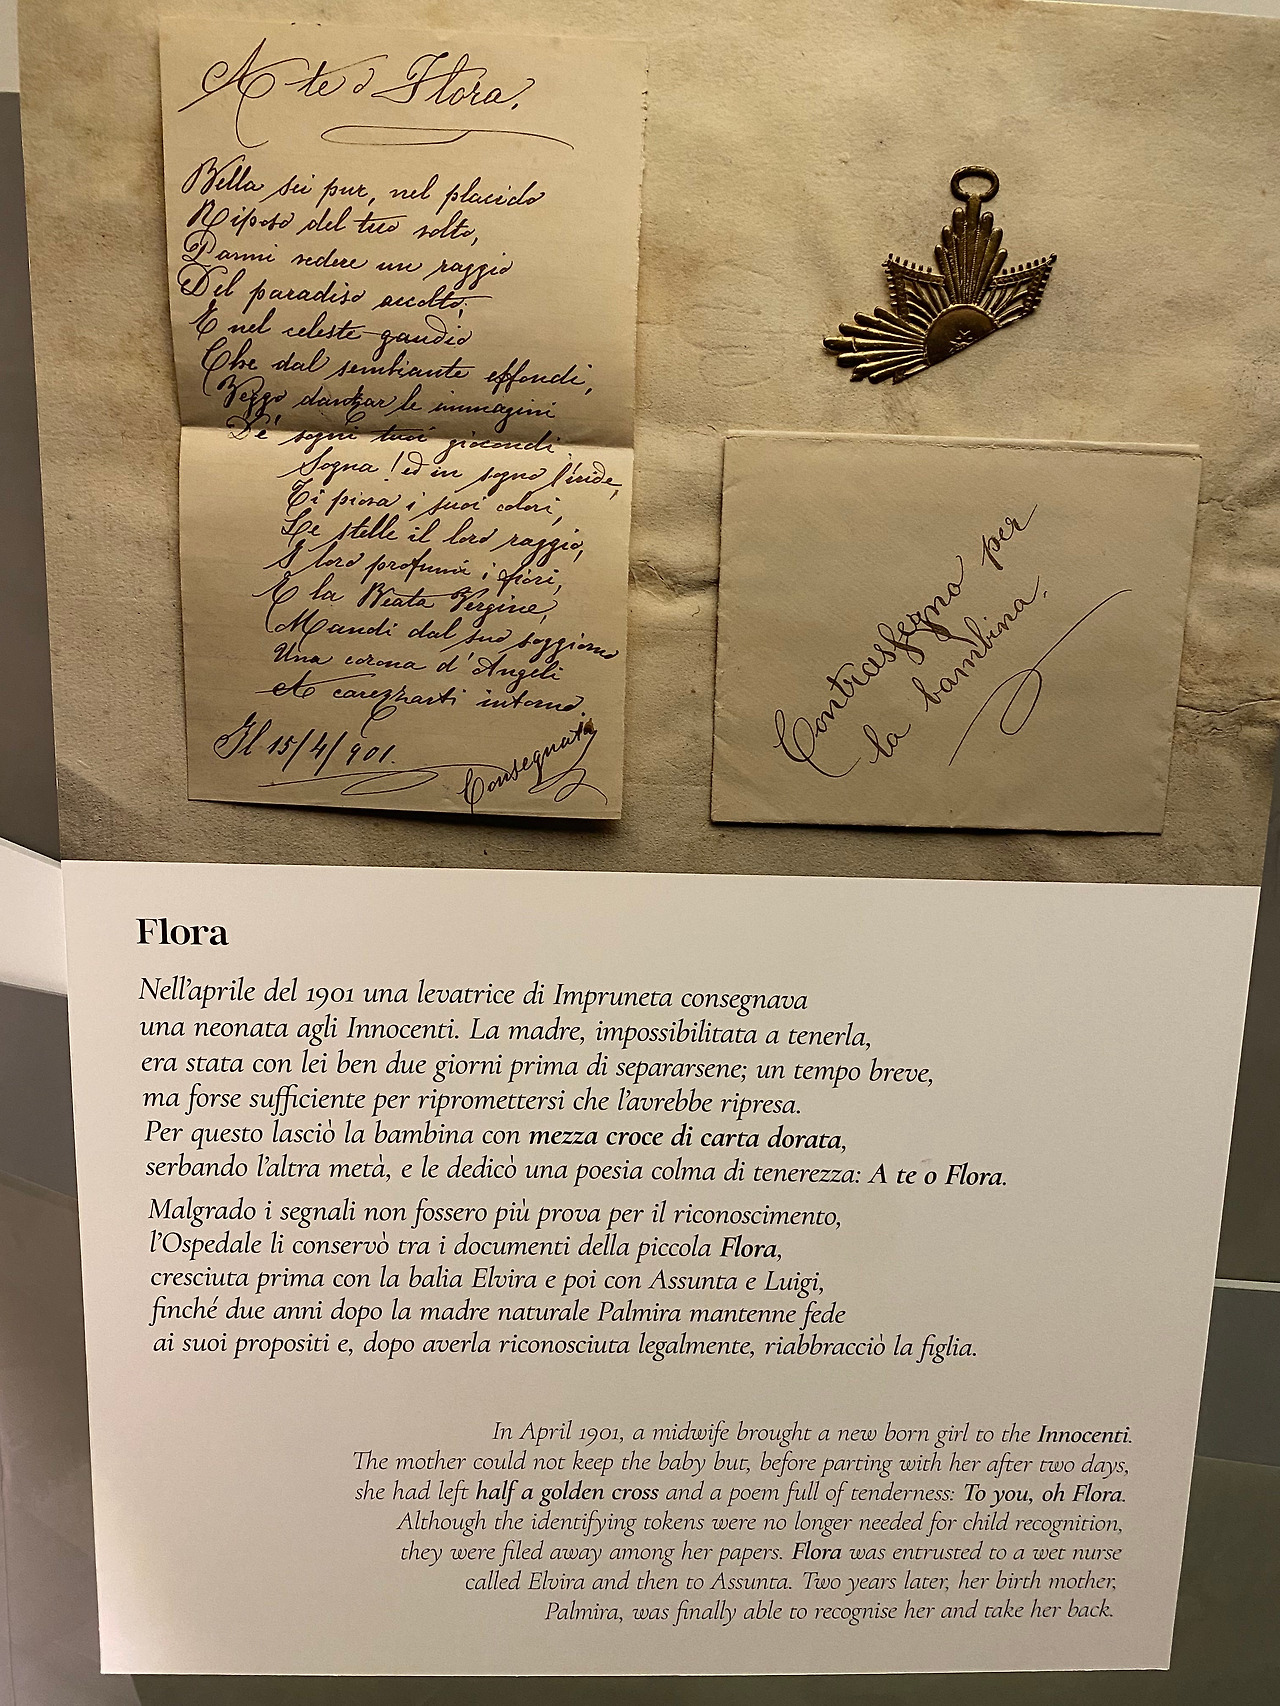 A te o Flora.
Bella sei pur, nel placido
Riposo del tuo volto,
Parmi vedere un raggio
Del paradiso accolto;
E nel celeste gaudio
Che dal sembiante effondi,
Veggo danzar le immagini
De' sogni tuoi giocondi
Sogna! ed in sogno l'iride,
Ti piova i suoi colori,
Le stelle il loro raggio,
I loro profumi i fiori,
E la Beata Vergine,
Mandi dal suo soggiorno
Una corona d'Angeli
A carezzarti intorno.
Il 15/4/901.
Consegnata
Contrassegno per
la bambina.
Flora
Nell'aprile del 1901 una levatrice di Impruneta consegnava
una neonata agli Innocenti. La madre, impossibilitata a tenerla,
era stata con lei ben due giorni prima di separarsene; un tempo breve,
ma forse sufficiente per ripromettersi che l'avrebbe ripresa.
Per questo lasciò la bambina con mezza croce di carta dorata,
serbando l'altra metà, e le dedicò una poesia colma di tenerezza: A te o Flora.
Malgrado i segnali non fossero più prova per il riconoscimento,
l'Ospedale li conservò tra i documenti della piccola Flora,
cresciuta prima con la balia Elvira e poi con Assunta e Luigi,
finché due anni dopo la madre naturale Palmira mantenne fede
ai suoi propositi e, dopo averla riconosciuta legalmente, riabbracciò la figlia.
In April 1901, a midwife brought a new born girl to the Innocenti.
The mother could not keep the baby but, before parting with her after two days,
she had left half a golden cross and a poem full of tenderness: To you, oh Flora.
Although the identifying tokens were no longer needed for child recognition,
they were filed away among her papers. Flora was entrusted to a wet nurse
called Elvira and then to Assunta. Two years later, her birth mother,
Palmira, was finally able to recognise her and take her back.